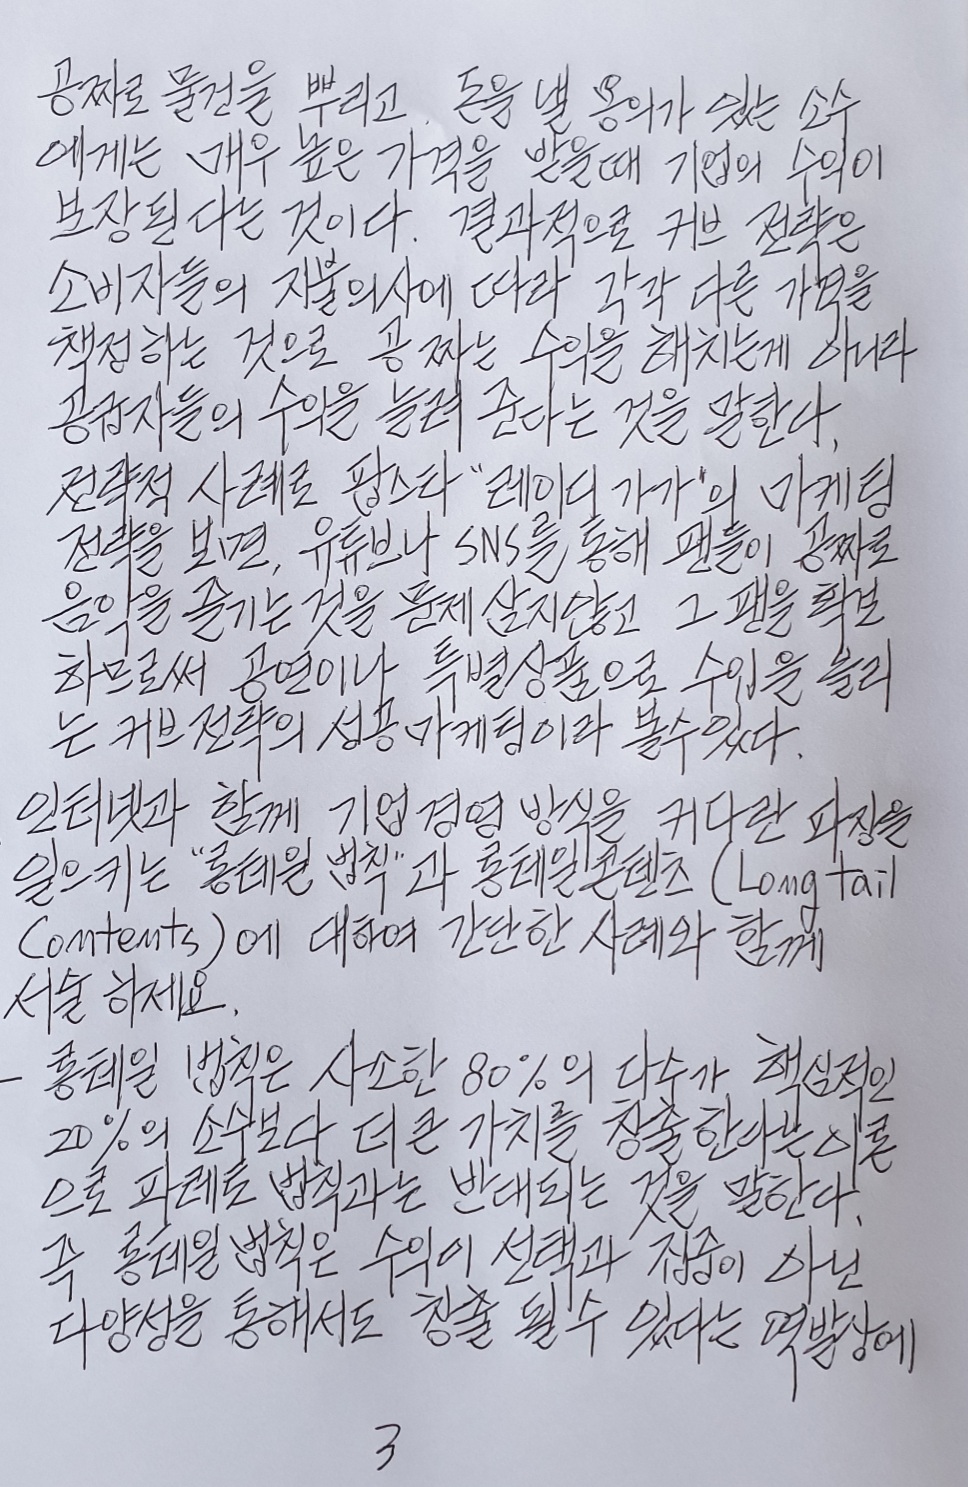 공짜로 물건을 뿌리고, 돈을 낼 용의가 있는 소수
에게는 매우 높은 가격을 받을때 기업의 수익이
보장된다는 것이다. 결과적으로 커브 전략은
소비자들의 지불의사에 따라 각각 다른 가격을
책정하는 것으로 공짜는 수익을 해치는게 아니라
공급자들의 수익을 늘려 준다는 것을 말한다.
전략적 사례로 팝스타 "레이디 가가"의 마케팅
전략을 보면, 유튜브나 SNS를 통해 팬들이 공짜로
음악을 즐기는 것을 문제 삼지않고 그 팬을 확보
하므로써 공연이나 특별상품으로 수입을 올리
는 커브전략의 성공마케팅이라 볼수있다.
인터넷과 함께 기업경영 방식을 커다란 파장을
일으키는 "롱테일 법칙"과 롱테일콘텐츠 (Long tail
Contents)에 대하여 간단한 사례와 함께
서술 하세요.
- 롱테일 법칙은 사소한 80%의 다수가 핵심적인
20%의 소수보다 더 큰 가치를 창출한다는 이론
으로 파레토 법칙과는 반대되는 것을 말한다.
즉 롱테일 법칙은 수익이 선택과 집중이 아닌
다양성을 통해서도 창출 될수 있다는 역발상에
3